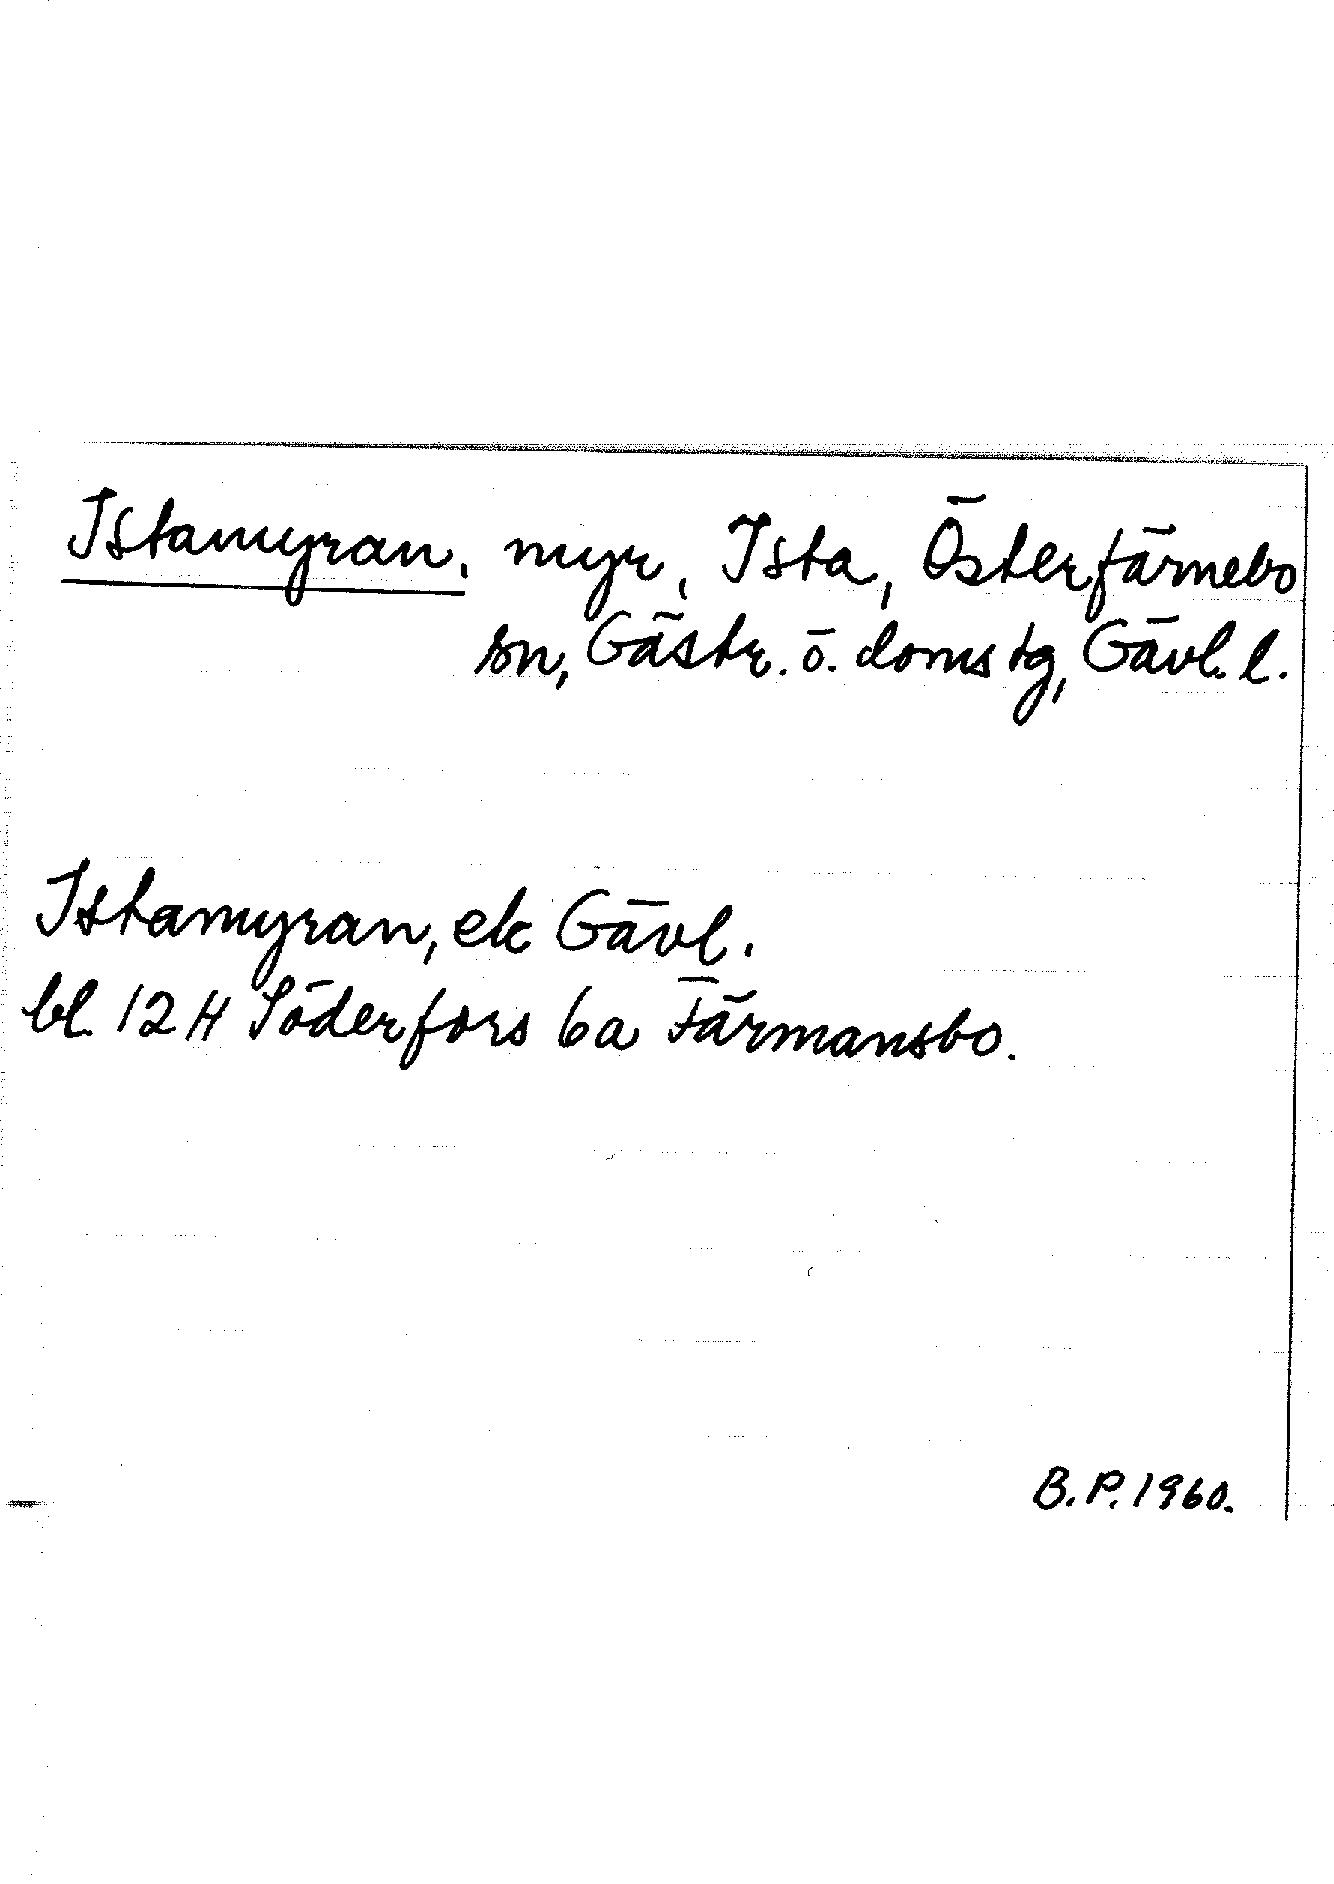 Istamyran, myr, Ista, Österfärnebo
sn, Gästr. ö. domstg, Gävl. l.
Istamyran, ek Gävl.
bl. 12 H Söderfors 6 a Färmansbo.
B.P. 1960.